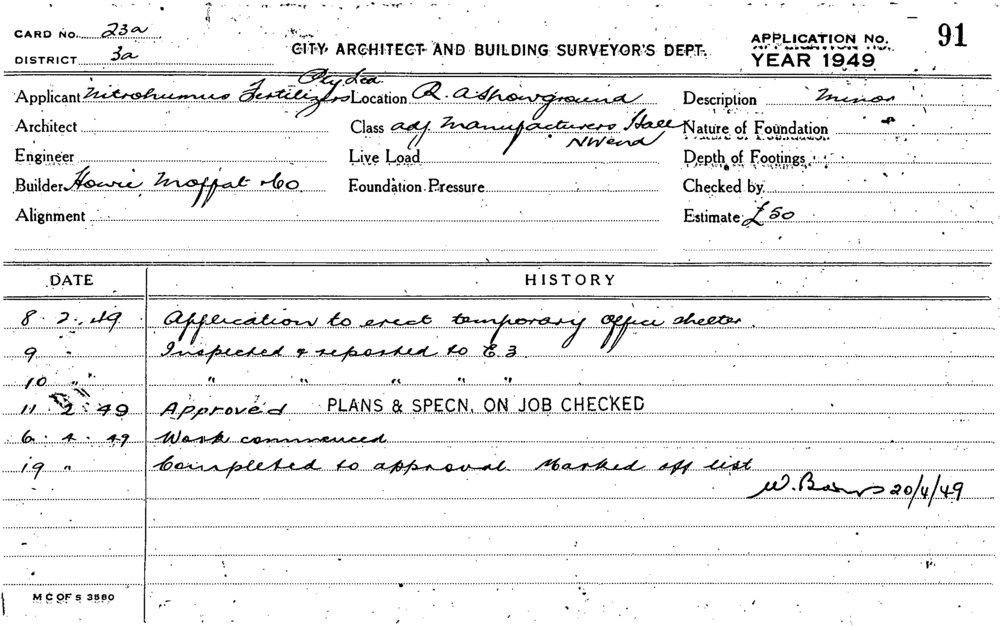 CARD No. 23a
DISTRICT 3a
CITY ARCHITECT AND BUILDING SURVEYOR'S DEPT.
APPLICATION No. 91
YEAR 1949
Pty Ltd
Applicant Nitrohumus Fertilizers Location R. A Showground Description Minor
Architect Class adj. Manufacturers Hall Nature of Foundation
NW end
Engineer Live Load Depth of Footings
Builder Howie Moffat & Co Foundation Pressure Checked by
Alignment Estimate £50
DATE HISTORY
8. 2. 49 Application to erect temporary office shelter.
9 " Inspected & reported to E.3.
10 " " " " " "
11 2. 49 Approved PLANS & SPECN. ON JOB CHECKED
6. 4. 49 Work commenced
19 " Completed to approval. Marked off list
W. 20/4/49
M C OF S 3580